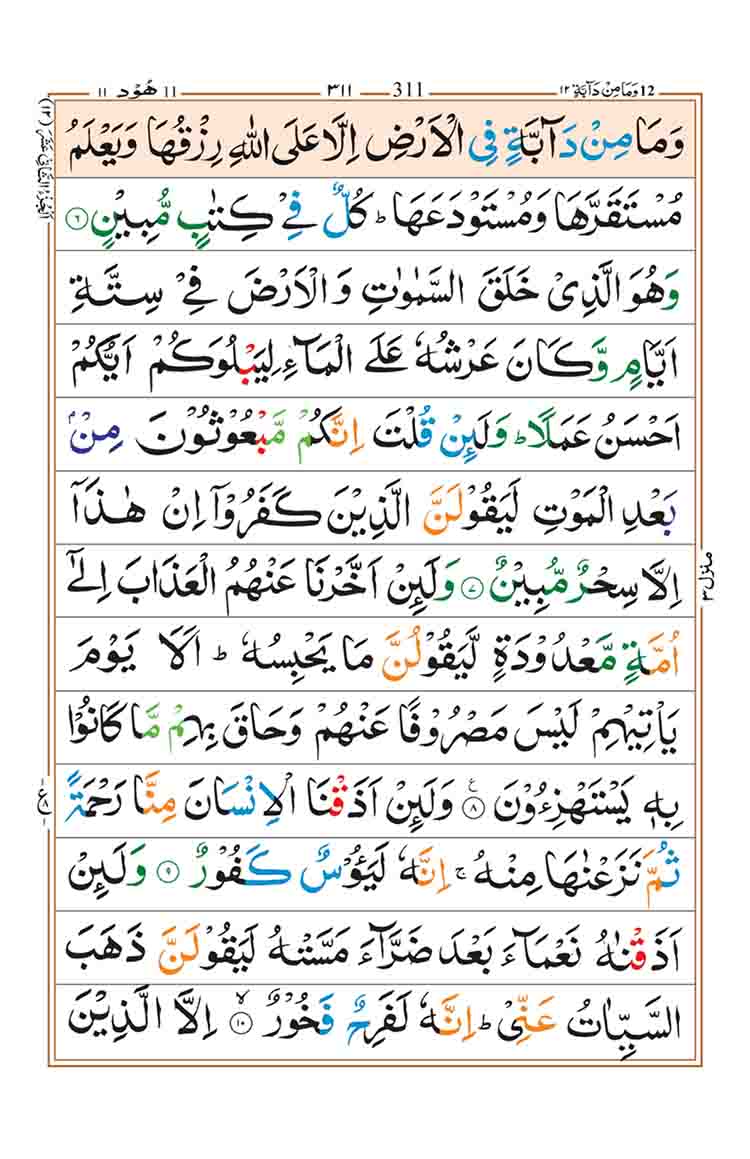 12 وَمَا مِنْ دَآبَّةٍ ١٢ 311 ٣١١ 11 هُوْد ١١
وَمَا مِنْ دَآبَّةٍ فِی الْاَرْضِ اِلَّا عَلَی اللّٰهِ رِزْقُهَا وَیَعْلَمُ
مُسْتَقَرَّهَا وَمُسْتَوْدَعَهَا ؕ كُلٌّ فِیْ كِتٰبٍ مُّبِیْنٍ ۝۶
وَهُوَ الَّذِیْ خَلَقَ السَّمٰوٰتِ وَالْاَرْضَ فِیْ سِتَّةِ
اَیَّامٍ وَّكَانَ عَرْشُهٗ عَلَی الْمَآءِ لِیَبْلُوَكُمْ اَیُّكُمْ
اَحْسَنُ عَمَلًا ؕ وَلَىِٕنْ قُلْتَ اِنَّكُمْ مَّبْعُوْثُوْنَ مِنْۢ
بَعْدِ الْمَوْتِ لَیَقُوْلَنَّ الَّذِیْنَ كَفَرُوْۤا اِنْ هٰذَاۤ
اِلَّا سِحْرٌ مُّبِیْنٌ ۝۷ وَلَىِٕنْ اَخَّرْنَا عَنْهُمُ الْعَذَابَ اِلٰۤی
اُمَّةٍ مَّعْدُوْدَةٍ لَّیَقُوْلُنَّ مَا یَحْبِسُهٗ ؕ اَلَا یَوْمَ
یَاْتِیْهِمْ لَیْسَ مَصْرُوْفًا عَنْهُمْ وَحَاقَ بِهِمْ مَّا كَانُوْا
بِهٖ یَسْتَهْزِءُوْنَ ۝۸ ع وَلَىِٕنْ اَذَقْنَا الْاِنْسَانَ مِنَّا رَحْمَةً
ثُمَّ نَزَعْنٰهَا مِنْهُ ۚ اِنَّهٗ لَیَـُٔوْسٌ كَفُوْرٌ ۝۹ وَلَىِٕنْ
اَذَقْنٰهُ نَعْمَآءَ بَعْدَ ضَرَّآءَ مَسَّتْهُ لَیَقُوْلَنَّ ذَهَبَ
السَّیِّاٰتُ عَنِّیْ ؕ اِنَّهٗ لَفَرِحٌ فَخُوْرٌ ۝۱۰ ۙ اِلَّا الَّذِیْنَ
اَلْجُزْءُ الثَّانِیْ عَشَرَ (١٢)
منزل ٣
ع ٨